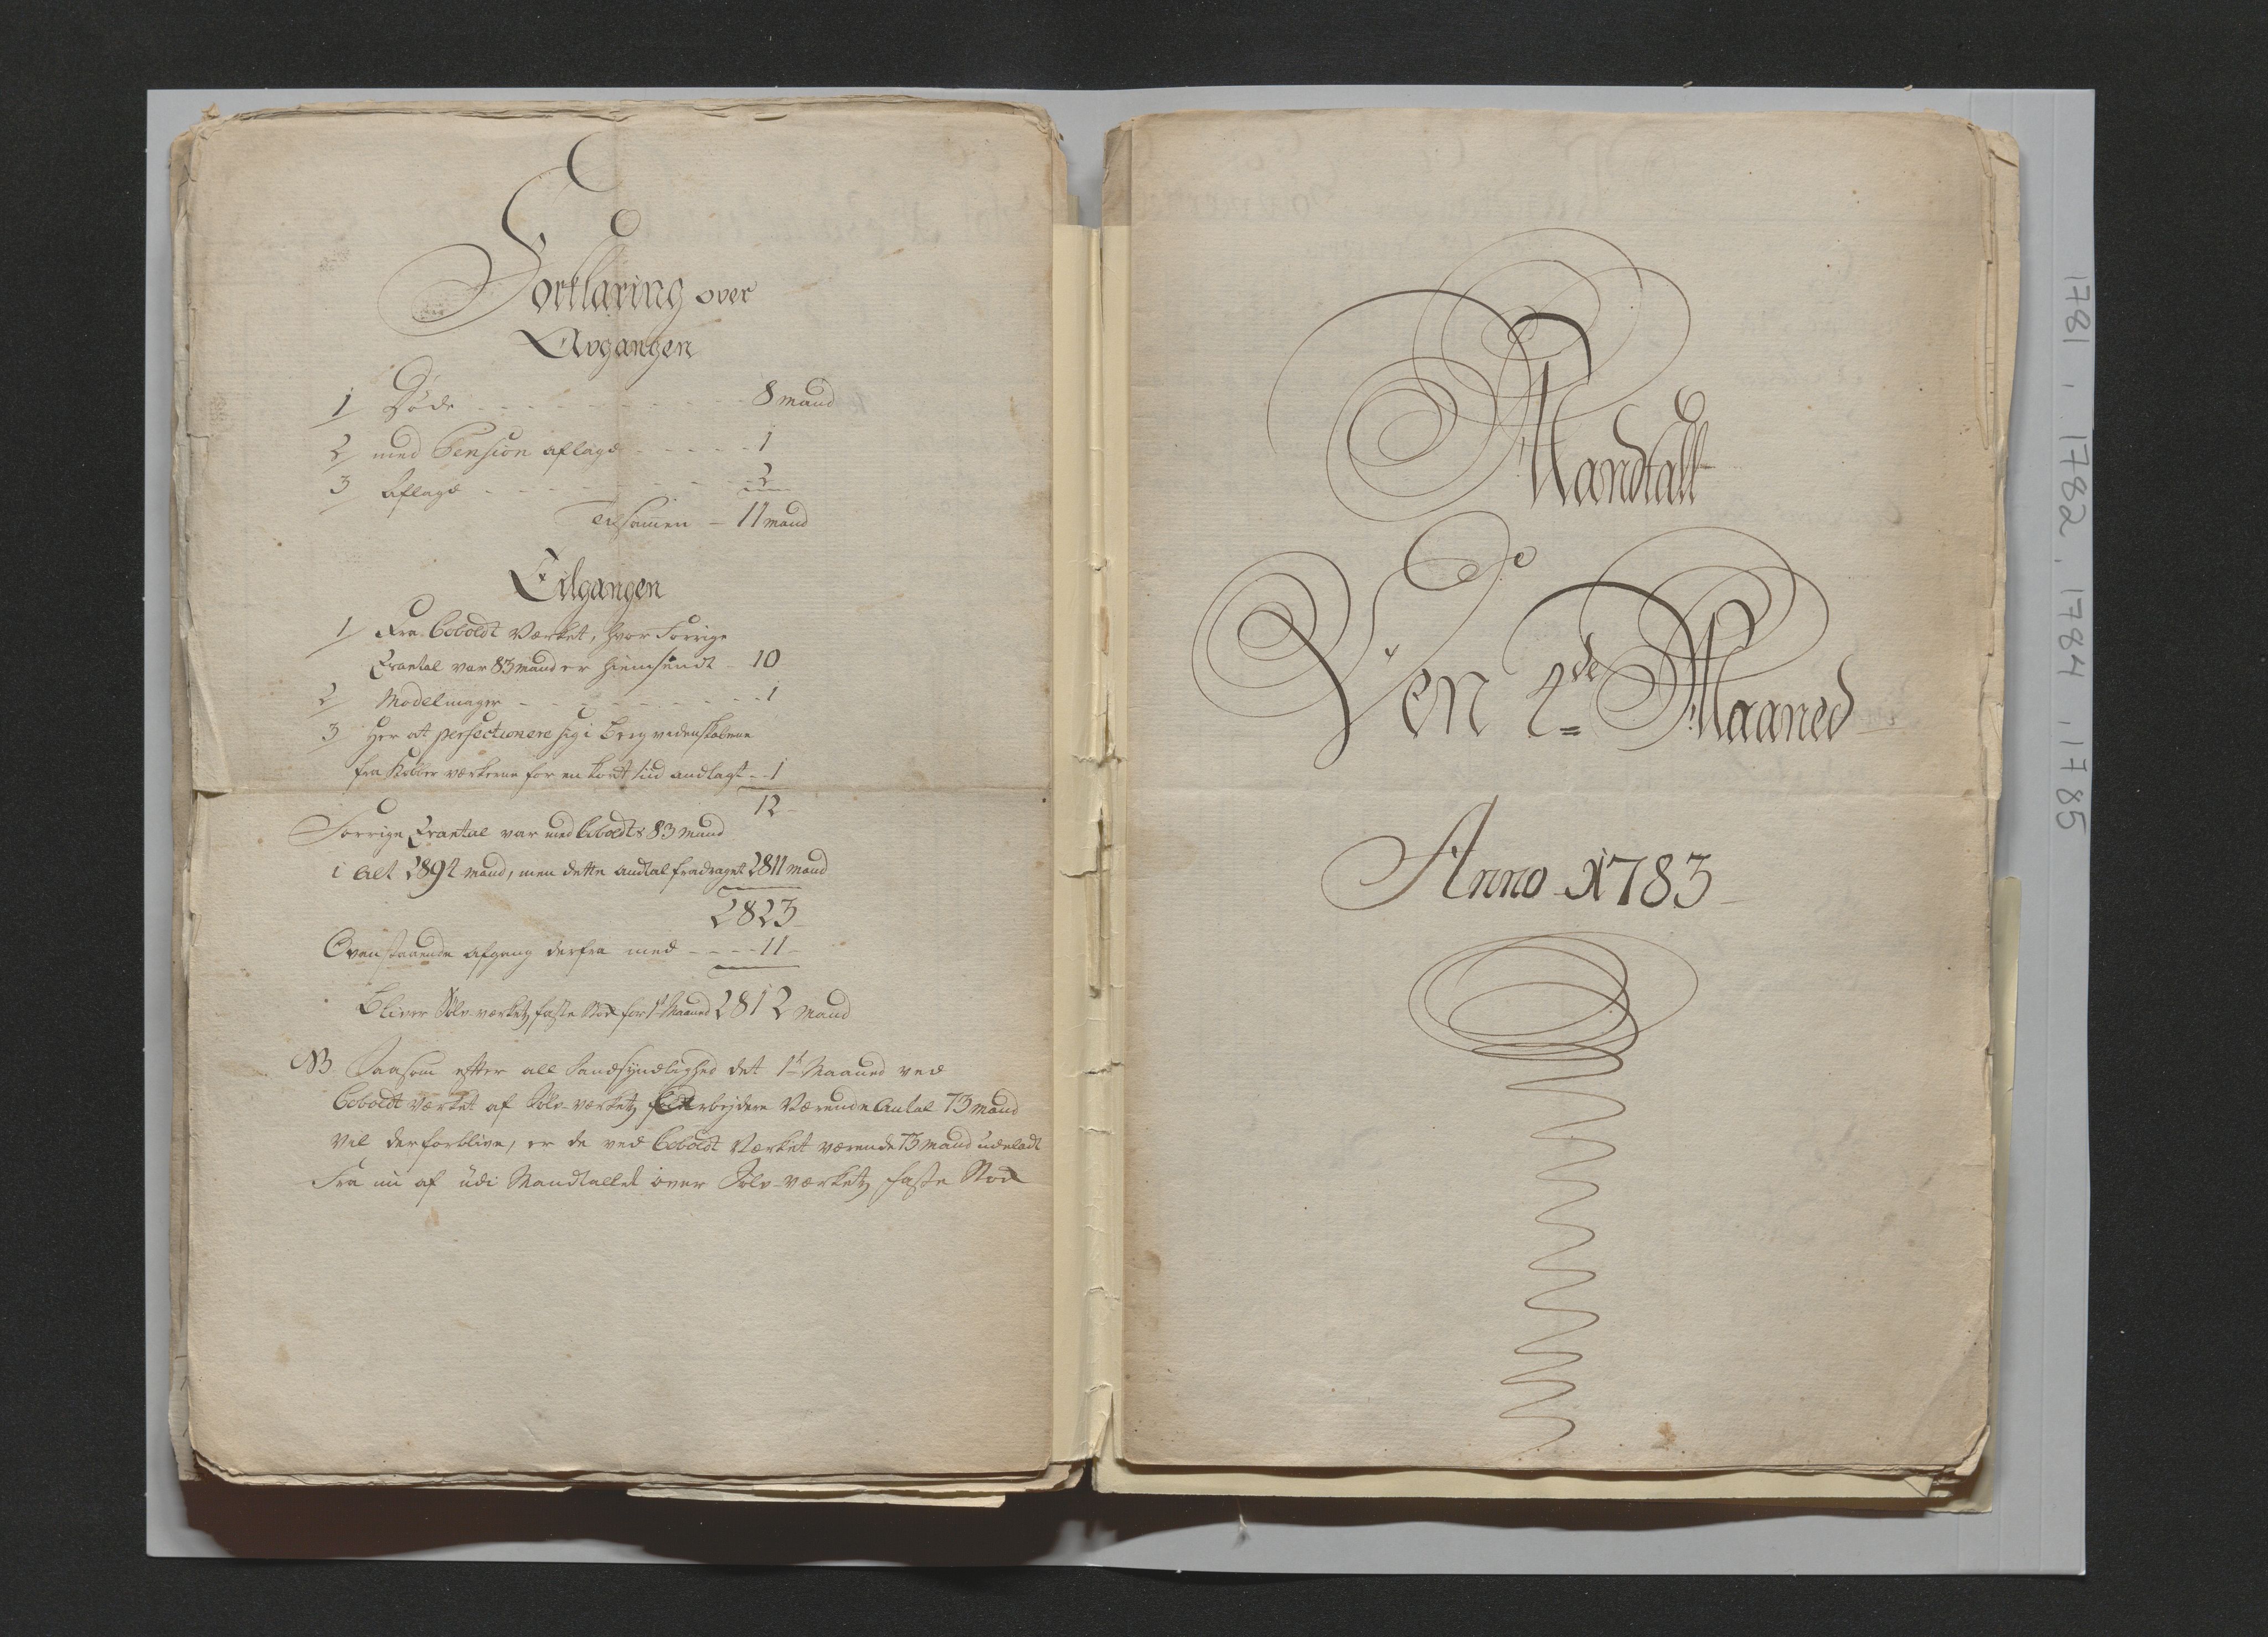 Forklaring over
Avgangen
1/ Døde - - - - - - - - 8 mand
2/ med Pension aflagd - - - - - 1
3/ Aflagd - - - - - - - - 2
Tilsamen - 11 mand
Tilgangen
1/ Fra Coboldt Værket, hvor Forrige
Qvantal var 83 mand er hiemsendt - 10
2/ Modelmager - - - - - - - - 1
3/ Her at perfectionere sig i Berg videnskaberne
fra Kobber værkerne for en kort tiid andtagt - - 1
12
Forrige Qvantal var med Coboldts 83 mand
i alt 2894 mand, men dette andtal fradraget 2811 mand
2823
Ovenstaaende afgang derfra med - - - - 11 -
Bliver Sølv-værkets faste Stok for 1te Maaned 2812 mand
NB Saasom efter all Sandsynlighed det 1te Maaned ved
Coboldt Værket af Sølv-værkets folk arbejdere Værende Antal 73 mand
vil der forblive, er de ved Coboldt Værket værende 73 mand udeladt
Fra nu af udi Mandtallet over Sølv-værkets faste Stok
Mandtall
Den 2de Maaned
Anno 1783
1781, 1782, 1784, 1785